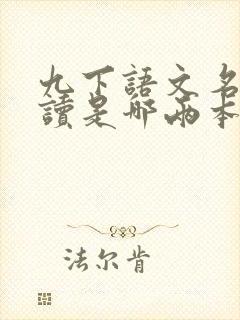 九下語文名
讀是哪兩本
法尔肯